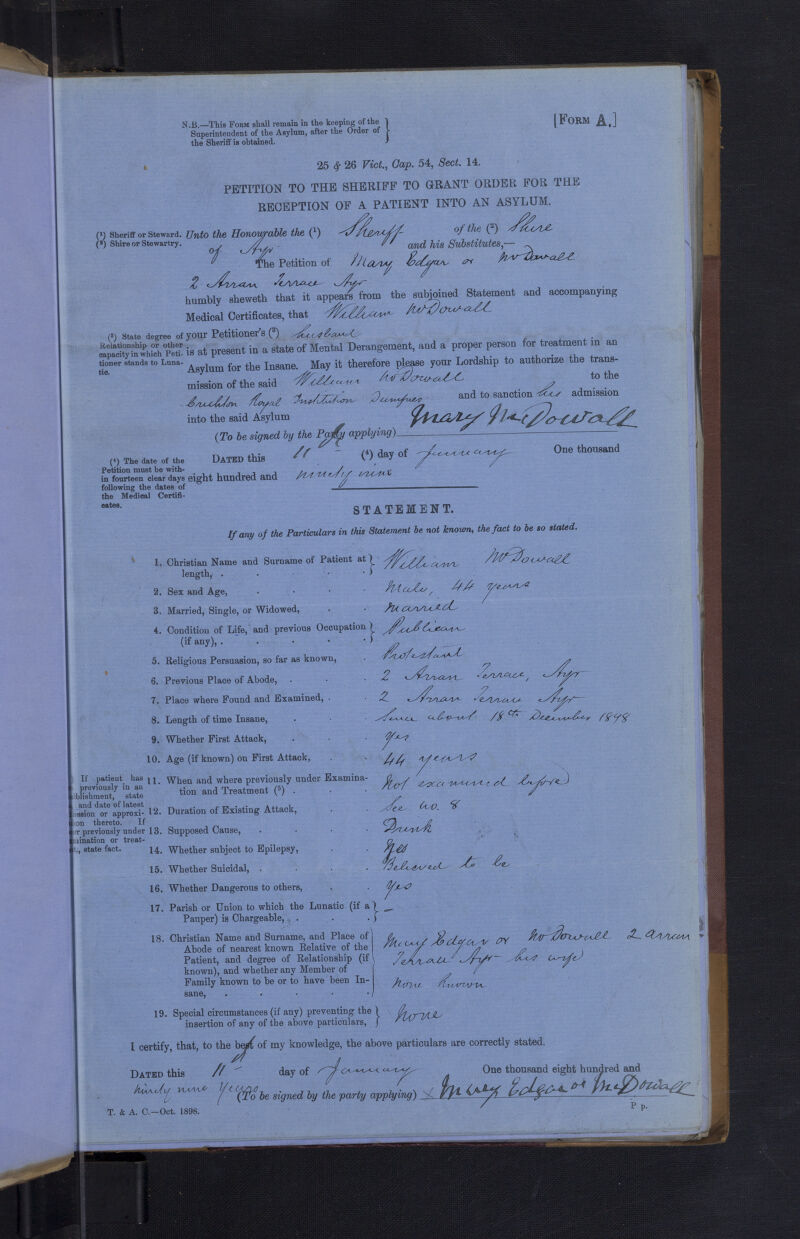 N.B.—This Form shall remain in the keeping of the
Superintendent of the Asylum, after the Order of
the Sheriff is obtained.
[Form A.]
25 & 26 Vict., Cap. 54, Sect. 14.
PETITION TO THE SHERIFF TO GRANT ORDER FOR THE
RECEPTION OF A PATIENT INTO AN ASYLUM.
(¹) Sheriff or Steward.
(²) Shire or Stewartry.
Unto the Honourable the (¹) Sheriff of the (²) Shire
of Ayr and his Substitutes,—
The Petition of Mary Edgar or McDowall
2 Arran Terrace Ayr
humbly sheweth that it appears from the subjoined Statement and accompanying
Medical Certificates, that William McDowall
(³) State degree of
Relationship or other
capacity in which Peti-
tioner stands to Luna-
tic.
your Petitioner's (³) husband
is at present in a state of Mental Derangement, and a proper person for treatment in an
Asylum for the Insane. May it therefore please your Lordship to authorize the trans-
mission of the said William McDowall to the
Crichton Royal Institution Dumfries and to sanction his admission
into the said Asylum
(To be signed by the Party applying) Mary McDowall
(⁴) The date of the
Petition must be with-
in fourteen clear days
following the dates of
the Medical Certifi-
cates.
Dated this 11th (⁴) day of January One thousand
eight hundred and ninety nine
STATEMENT.
If any of the Particulars in this Statement be not known, the fact to be so stated.
1. Christian Name and Surname of Patient at length, . . . William McDowall
2. Sex and Age, . . . . Male, 44 years
3. Married, Single, or Widowed, . . Married
4. Condition of Life, and previous Occupation (if any), . . . . . Publican
5. Religious Persuasion, so far as known, . Protestant
6. Previous Place of Abode, . . . 2 Arran Terrace, Ayr
7. Place where Found and Examined, . . 2 Arran Terrace Ayr
8. Length of time Insane, . . . Since about 18th December 1898
9. Whether First Attack, . . . Yes
10. Age (if known) on First Attack, . . 44 years
If patient has
previously in an
state
and date of latest
or approxi-
thereto. If
previously under
or treat-
state fact.
11. When and where previously under Examina-
tion and Treatment (⁵) . . . Not examined before
12. Duration of Existing Attack, . . See no. 8
13. Supposed Cause, . . . . Drink
14. Whether subject to Epilepsy, . .
15. Whether Suicidal, . . . . Believed to be
16. Whether Dangerous to others, . . Yes
17. Parish or Union to which the Lunatic (if a
Pauper) is Chargeable, . . . —
18. Christian Name and Surname, and Place of
Abode of nearest known Relative of the
Patient, and degree of Relationship (if
known), and whether any Member of
Family known to be or to have been In-
sane, . . . . . .
Mary Edgar or McDowall 2 Arran
Terrace Ayr his wife
None known
19. Special circumstances (if any) preventing the
insertion of any of the above particulars, None
I certify, that, to the best of my knowledge, the above particulars are correctly stated.
Dated this 11th day of January One thousand eight hundred and
ninety nine years (To be signed by the party applying) x Mary Edgar or McDowall
T. & A. C.—Oct. 1898.
P p.